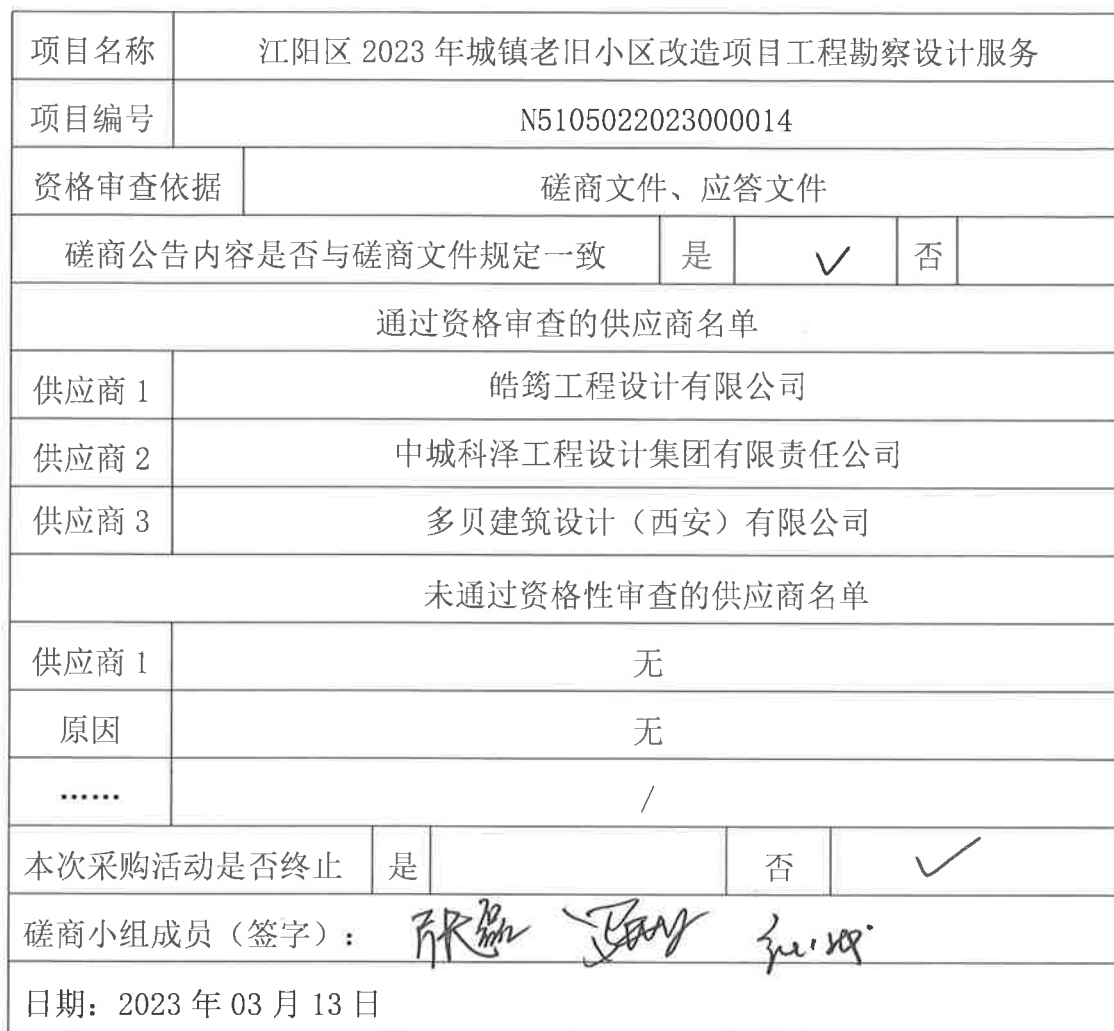 项目名称 江阳区 2023 年城镇老旧小区改造项目工程勘察设计服务
项目编号 N5105022023000014
资格审查依据 磋商文件、应答文件
磋商公告内容是否与磋商文件规定一致 是 ✓ 否
通过资格审查的供应商名单
供应商 1 皓筠工程设计有限公司
供应商 2 中城科泽工程设计集团有限责任公司
供应商 3 多贝建筑设计（西安）有限公司
未通过资格性审查的供应商名单
供应商 1 无
原因 无
…… /
本次采购活动是否终止 是 否 ✓
磋商小组成员（签字）： 张磊
日期：2023 年 03 月 13 日